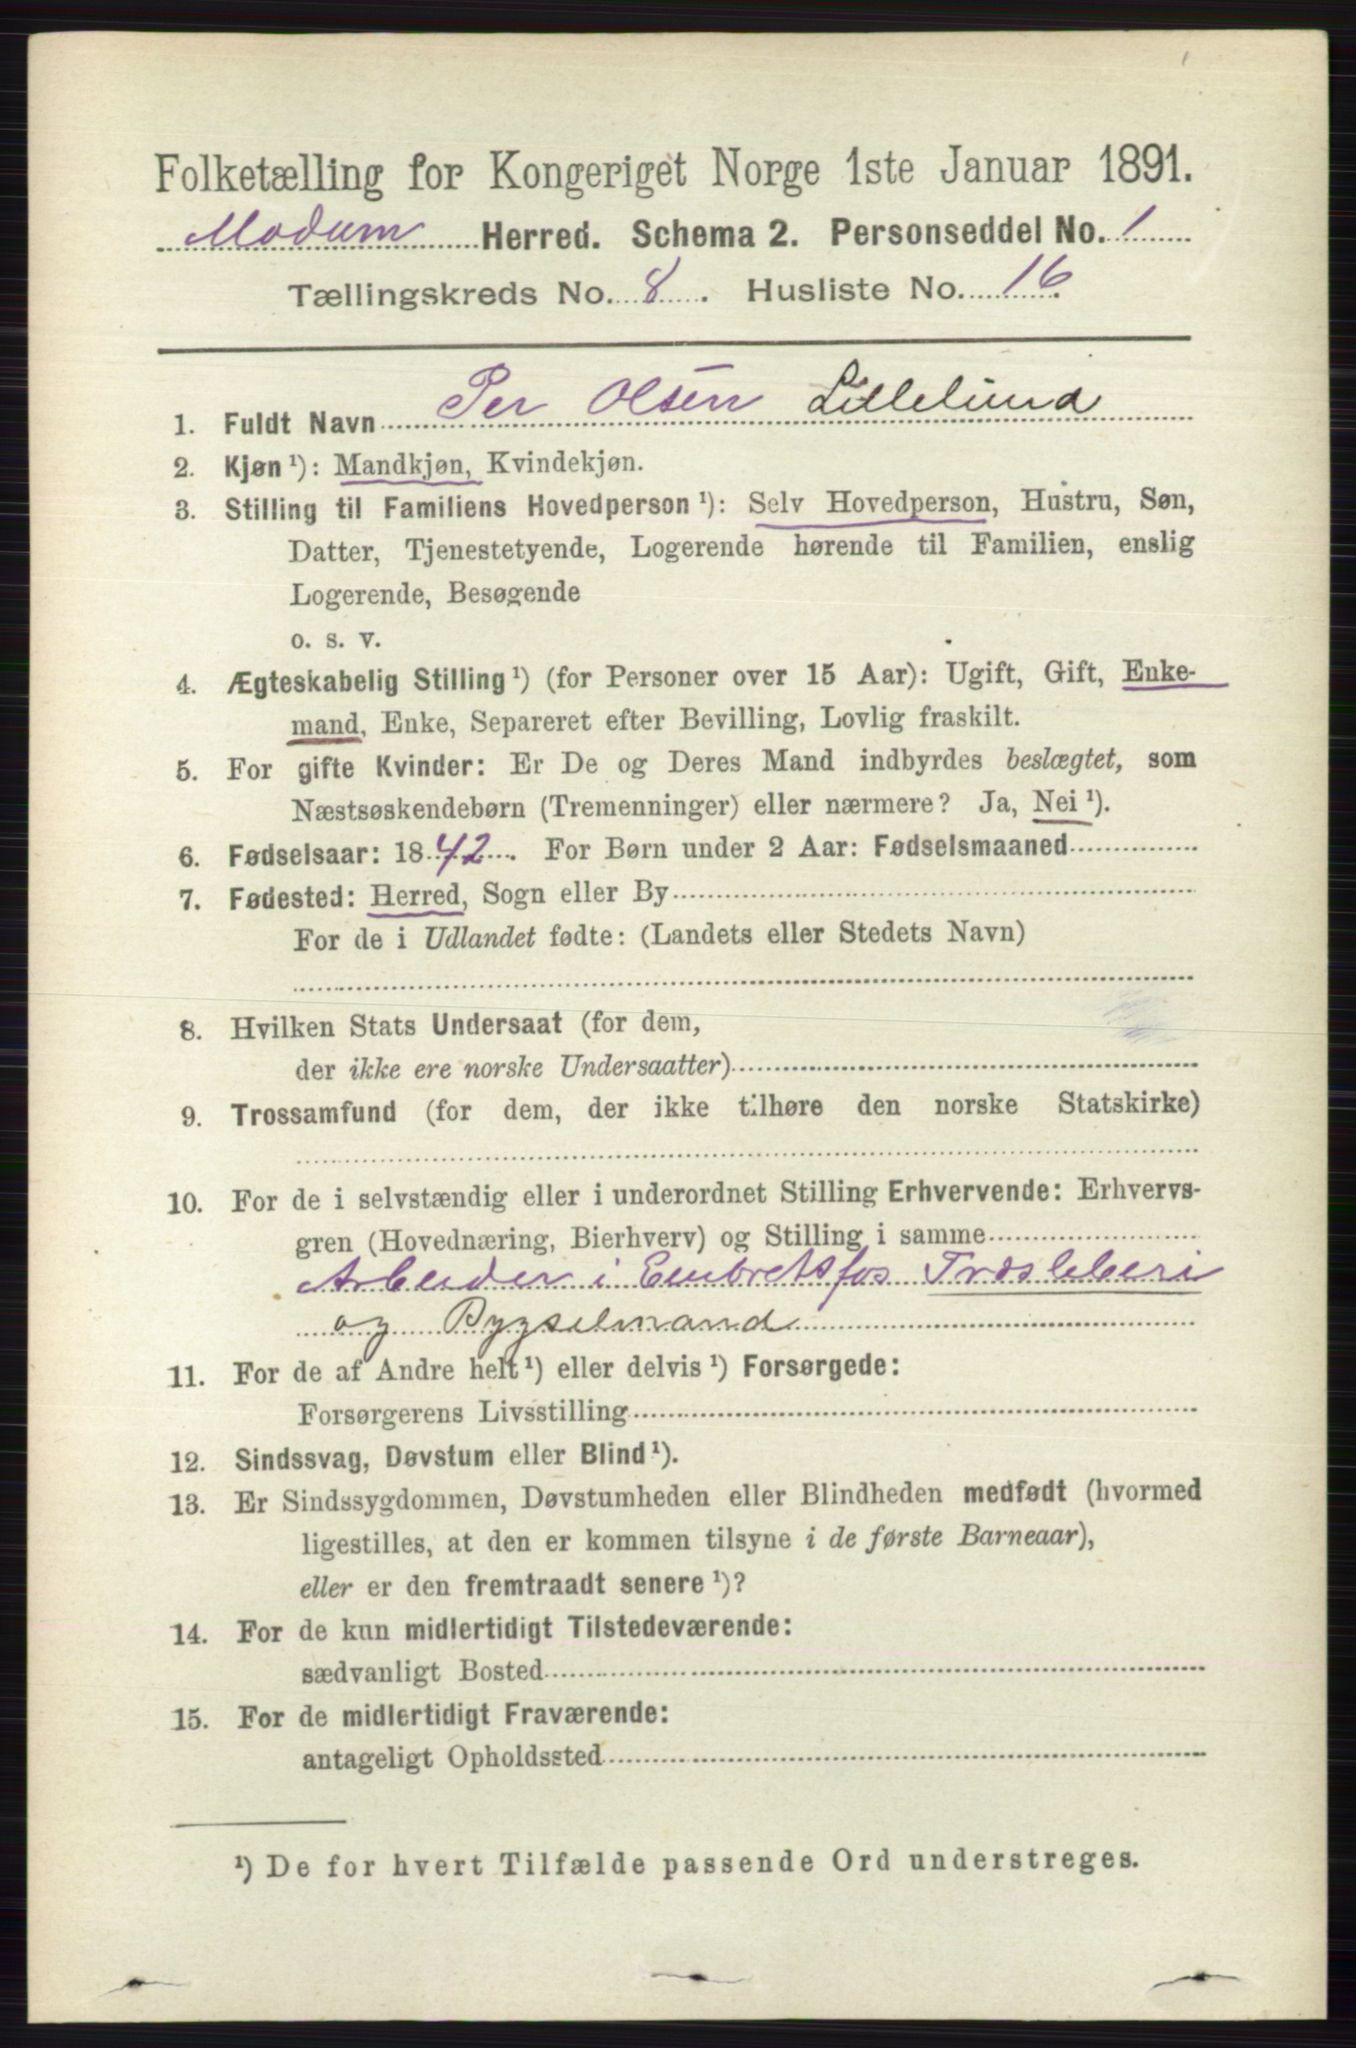 Folketælling for Kongeriget Norge 1ste Januar 1891.
Modum Herred. Schema 2. Personseddel No. 1
Tællingskreds No. 8. Husliste No. 16.
1. Fuldt Navn Per Olsen Lillelund
2. Kjøn ¹): Mandkjøn, Kvindekjøn.
3. Stilling til Familiens Hovedperson ¹): Selv Hovedperson, Hustru, Søn,
Datter, Tjenestetyende, Logerende hørende til Familien, enslig
Logerende, Besøgende
o. s. v.
4. Ægteskabelig Stilling ¹) (for Personer over 15 Aar): Ugift, Gift, Enke-
mand, Enke, Separeret efter Bevilling, Lovlig fraskilt.
5. For gifte Kvinder: Er De og Deres Mand indbyrdes beslægtet, som
Næstsøskendebørn (Tremenninger) eller nærmere? Ja, Nei ¹).
6. Fødselsaar: 1842. For Børn under 2 Aar: Fødselsmaaned
7. Fødested: Herred, Sogn eller By
For de i Udlandet fødte: (Landets eller Stedets Navn)
8. Hvilken Stats Undersaat (for dem,
der ikke ere norske Undersaatter)
9. Trossamfund (for dem, der ikke tilhøre den norske Statskirke)
10. For de i selvstændig eller i underordnet Stilling Erhvervende: Erhvervs-
gren (Hovednæring, Bierhverv) og Stilling i samme
Arbeider i Embretsfos Træsliberi
og Bygselmand
11. For de af Andre helt ¹) eller delvis ¹) Forsørgede:
Forsørgerens Livsstilling
12. Sindssvag, Døvstum eller Blind ¹).
13. Er Sindssygdommen, Døvstumheden eller Blindheden medfødt (hvormed
ligestilles, at den er kommen tilsyne i de første Barneaar),
eller er den fremtraadt senere ¹)?
14. For de kun midlertidigt Tilstedeværende:
sædvanligt Bosted
15. For de midlertidigt Fraværende:
antageligt Opholdssted
¹) De for hvert Tilfælde passende Ord understreges.